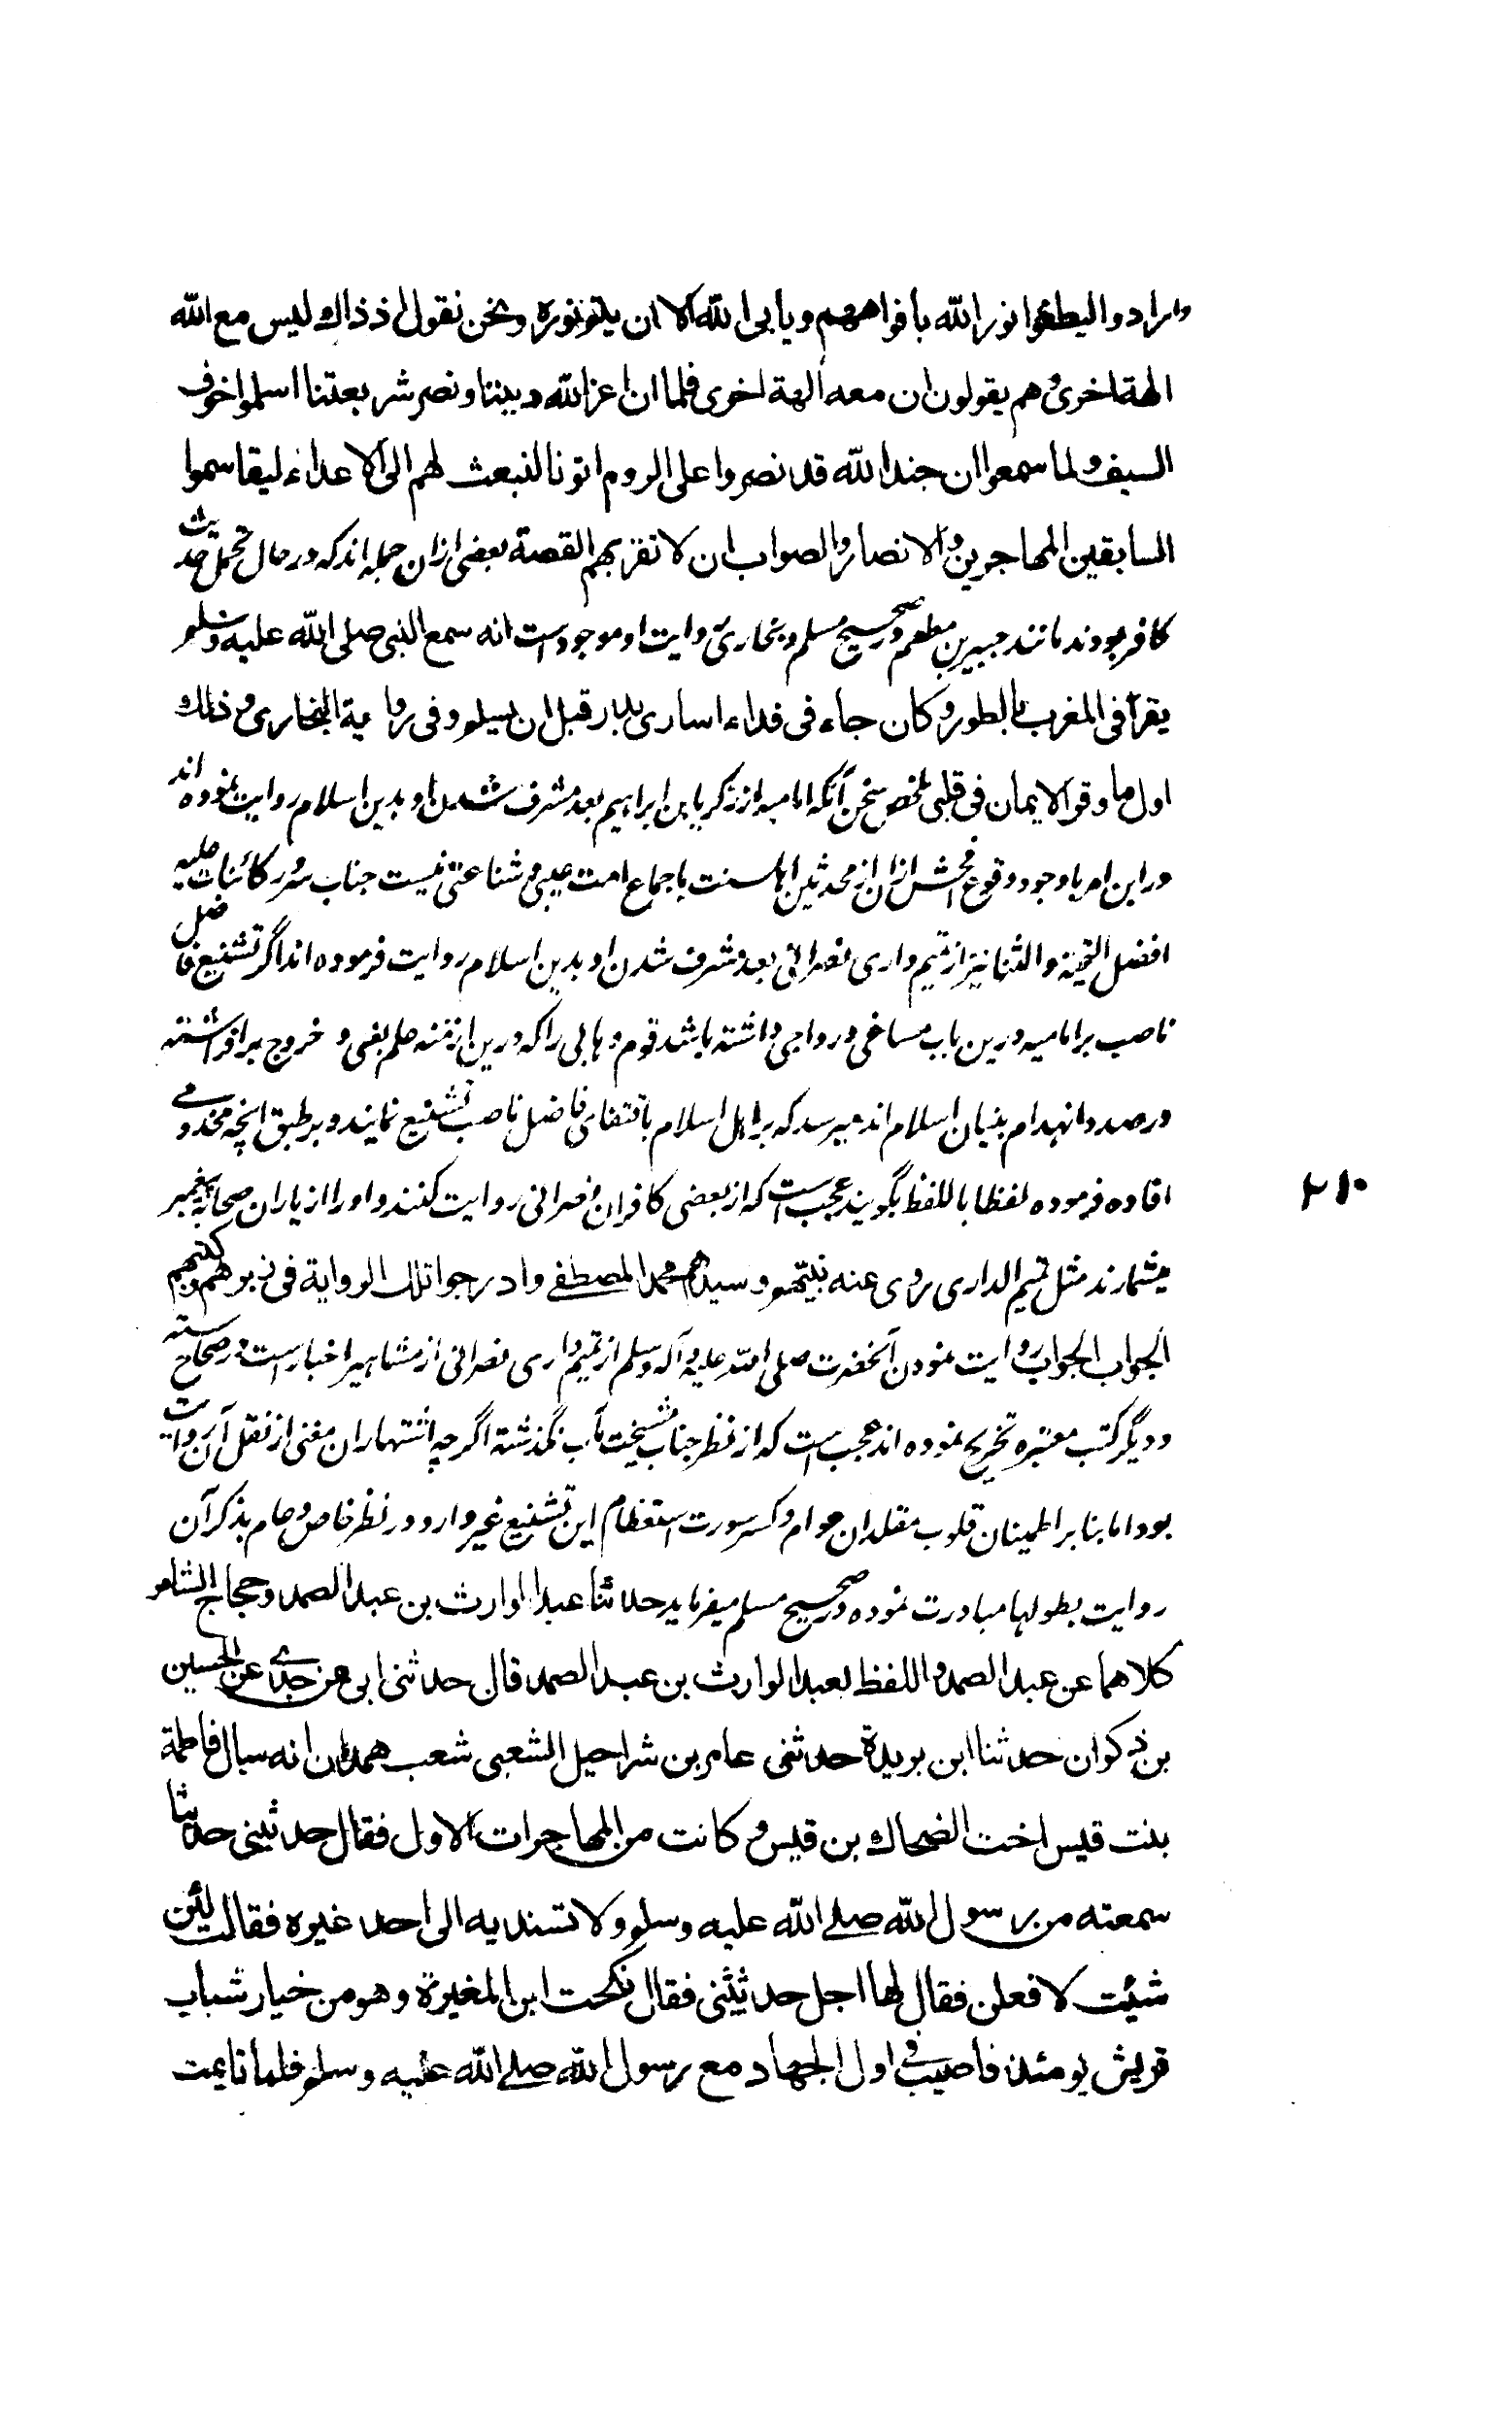 وارادوا لیطفوا نور الله بافواههم ویابی الله الا ان یتم نوره ونحن نقول اذ ذاك لیس مع الله
الهة اخری وهم یقولون ان معه الهة اخری فلما ان اعز الله دیننا ونصر شریعتنا اسلموا خوف
السیف ولما سمعوا ان جند الله قد نصروا علی الروم اتونا لنبعث لهم الی الاعداء لیقاسموا
السابقین المهاجرین والانصار والصواب ان لا نقربهم القصة بعضی ازان جمله اند که در حال تحمل حدیث
کافر بودند مانند جبیر بن مطعم در صحیح مسلم وبخاری روایت او موجود است انه سمع النبی صلی الله علیه وسلم
یقرأ فی المغرب بالطور وکان جاء فی فداء اساری بدر قبل ان یسلم وفی روایة البخاری وذلك
اول ما وقر الایمان فی قلبی ملخص سخن آنکه امامیه از زکریا بن ابراهیم بعد مشرف شدن او بدین اسلام روایت نموده اند
ودر این امر با وجود وقوع افحش ازان از محدثین اهل سنت باجماع امت عیبی وشناعتی نیست جناب سرور کائنات علیه
افضل التحیة والثنا نیز از تمیم داری نصرانی بعد مشرف شدن او بدین اسلام روایت فرموده اند اگر تشنیع فاضل
ناصب بر امامیه درین باب مساغی ورواجی داشته باشد قوم وهابی را که درین ازمنه علم بغی و خروج برافراشته
در صدد انهدام بنیان اسلام اند میرسد که بر اهل اسلام باقتفای فاضل ناصب تشنیع نمایند وبر طبق انچه مخدومی
افاده فرموده لفظا باللفظ بگویند عجب است که از بعضی کافران نصرانی روایت کنند واورا از یاران صحابه پیغمبر
میشمارند مثل تمیم الداری روی عنه نبیهم وسیدهم محمد المصطفی وادرجوا تلك الروایة فی زبرهم وکتبهم
الجواب الجواب روایت نمودن آنحضرت صلی الله علیه وآله وسلم از تمیم داری نصرانی از مشاهیر اخبار است در صحاح سته
ودیگر کتب معتبره تخریج نموده اند عجب است که از نظر جناب شیخیت مآب نگذشته اگرچه اشتهار ان مغنی از نقل آن روایت
بود اما بنا بر اطمینان قلوب مقلدان عوام وکسر سورت استعظام این تشنیع غیر وارد در نظر خاص وعام بذکر آن
روایت بطولها مبادرت نموده در صحیح مسلم میفرماید حدثنا عبد الوارث بن عبد الصمد وحجاج الشاعر
کلاهما عن عبد الصمد واللفظ لعبد الوارث بن عبد الصمد قال حدثنی ابی عن جدی عن الحسین
بن ذکوان حدثنا ابن بریدة حدثنی عامر بن شراحیل الشعبی شعب همدان انه سال فاطمة
بنت قیس اخت الضحاك بن قیس وکانت من المهاجرات الاول فقال حدثینی حدیثا
سمعته من رسول الله صلی الله علیه وسلم ولا تسندیه الی احد غیره فقالت لئن
شئت لافعلن فقال لها اجل حدثینی فقال نکحت ابن المغیرة وهو من خیار شباب
قریش یومئذ فاصیب فی اول الجهاد مع رسول الله صلی الله علیه وسلم فلما تایمت
۲۱۰